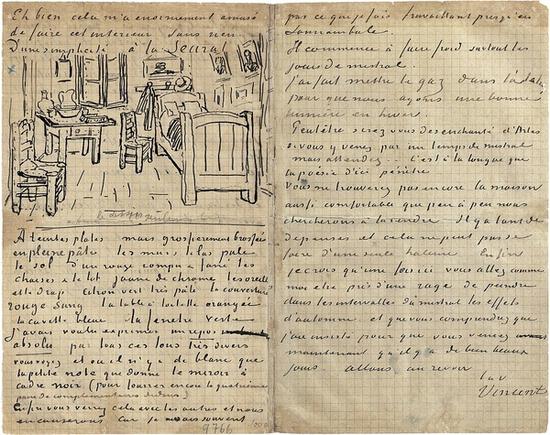 Eh bien cela m'a enormement amusé
de faire cet interieur sans rien
D'une simplicité à la Seurat
A teintes plates mais grossierement brossées
en pleine pâte les murs lilas pale
le sol d'un rouge rompu & fané les
chaises & le lit jaune de chrome les oreillers
et le drap citron vert très pâle la couverture
rouge sang la table à toilette orangée
la cuvette bleue la fenetre verte
J'avais voulu exprimer un repos
absolu par tous ces tons très divers
vous voyez et où il n'y a de blanc que
la petite note que donne le miroir à
cadre noir (pour fourrer encore la quatrième
paire de complementaires dedans)
Enfin vous verrez cela avec les autres et nous
en causerons car je ne sais souvent
9766
pas ce que je fais travaillant presqu'en
somnambule
Il commence à faire froid surtout les
jours de mistral
J'ai fait mettre le gaz dans
pour que nous ayons une bonne
lumière en hiver
Peut être serez vous desenchanté d'Arles
si vous y venez par un temps de mistral
mais attendez C'est à la longue que
la poésie d'ici pénètre
Vous ne trouverez pas encore la maison
aussi comfortable que peu à peu nous
chercherons à la rendre Il y a tant de
depenses et cela ne peut pas se
faire d'une seule haleine Enfin
je crois qu'une fois ici vous allez comme
moi être pris d'une rage de peindre
dans les intervalles du mistral les effets
d'automne et que vous comprendrez que
j'ai insisté pour que vous veniez
maintenant qu'il y a de bien beaux
jours allons au revoir
t à v
Vincent